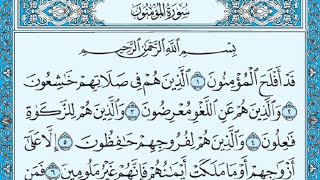 سُورَةُ المُؤْمِنُونَ
بِسْمِ ٱللَّهِ ٱلرَّحْمَٰنِ ٱلرَّحِيمِ
قَدْ أَفْلَحَ ٱلْمُؤْمِنُونَ ١ ٱلَّذِينَ هُمْ فِي صَلَاتِهِمْ خَٰشِعُونَ
٢ وَٱلَّذِينَ هُمْ عَنِ ٱللَّغْوِ مُعْرِضُونَ ٣ وَٱلَّذِينَ هُمْ لِلزَّكَوٰةِ
فَٰعِلُونَ ٤ وَٱلَّذِينَ هُمْ لِفُرُوجِهِمْ حَٰفِظُونَ ٥ إِلَّا عَلَىٰٓ
أَزْوَٰجِهِمْ أَوْ مَا مَلَكَتْ أَيْمَٰنُهُمْ فَإِنَّهُمْ غَيْرُ مَلُومِينَ ٦ فَمَنِ